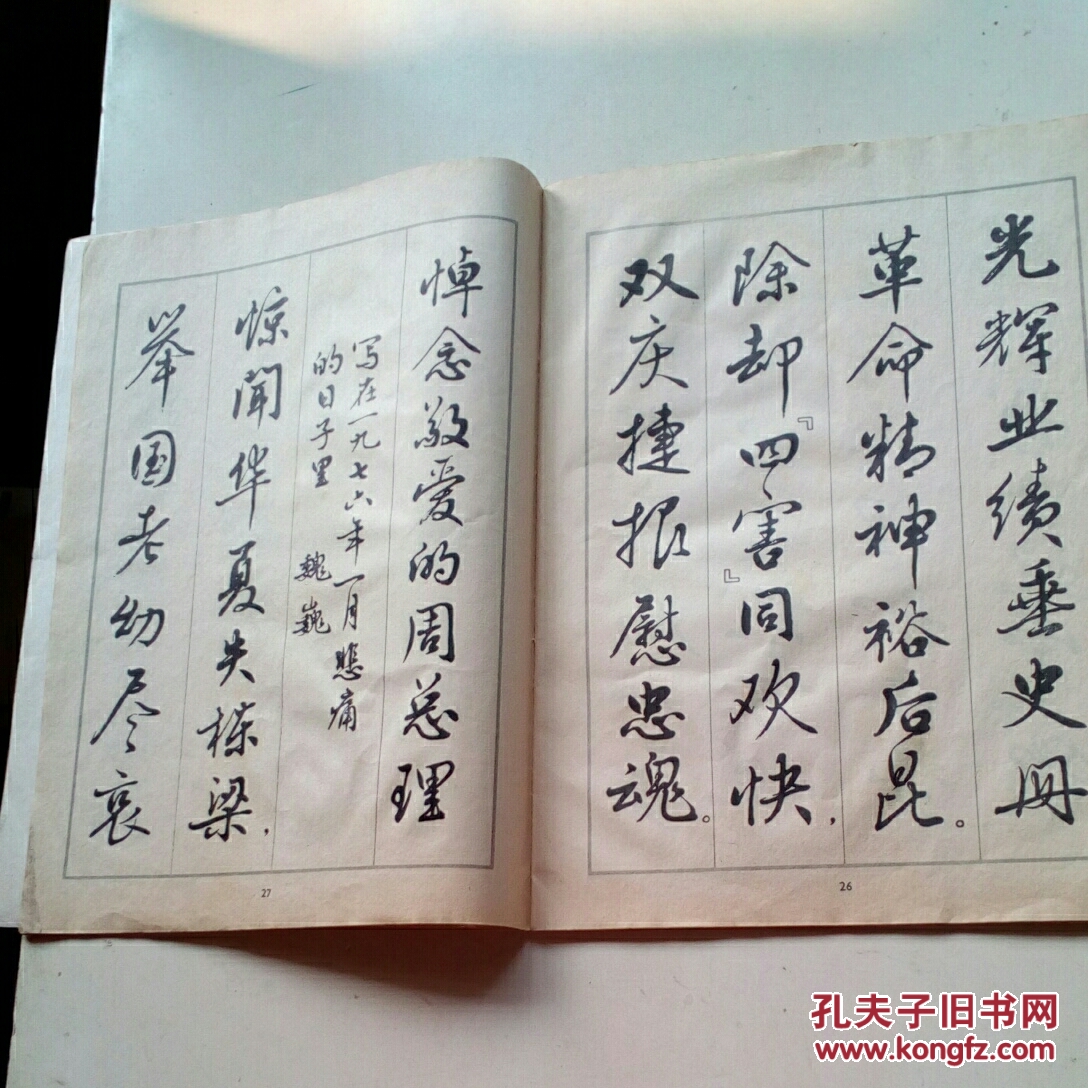 光辉业绩垂史册
革命精神裕后昆。
除却『四害』同欢快，
双庆捷报慰忠魂。
26
悼念敬爱的周总理
写在一九七六年一月悲痛
的日子里 魏巍
惊闻华夏失栋梁，
举国老幼尽哀
27
孔夫子旧书网
www.kongfz.com